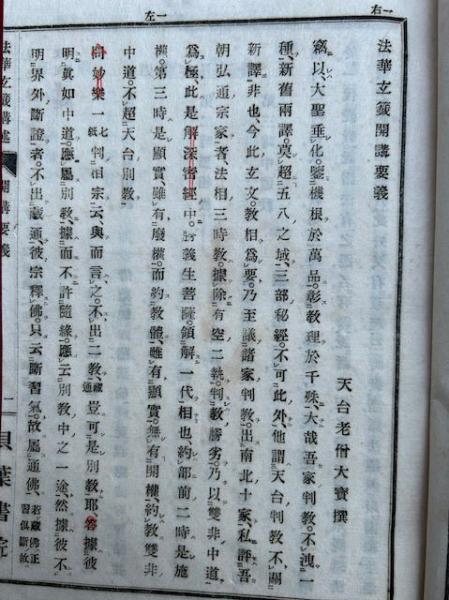 一右
一左
法華玄籤開講要義
天台老僧大寶撰
竊以、大聖垂化、隨機根於萬品。彰教理於千殊、大哉吾家判教。不洩一
種、新舊兩譯。莫超五八之域、三部秘經。不可此外、他謂天台判教、不關
新譯非也、今此玄文。教相爲要。乃至議諸家判教。出南北十家、私評吾
朝弘通宗家者、法相三時教。據除有空二執。判教勝劣。乃以雙非中道
爲極、此是解深密經中。勝義生菩薩。領解一代相也、約部前二時是施
權。第三時是顯實。雖有廢權。而約教體。雖有顯實。無有開權、約教雙非
中道。不超天台別教
問妙樂一七紙判相宗云、與而言之。不出二教藏通豈可是別教耶、答據彼
明眞如中道。應屬別教、據而不許隨緣。應云別教中之一途、然據彼不
明界外斷證者。不出藏通、彼宗釋佛。只云斷習氣。故屬通佛、若藏佛正習俱斷故
法華玄籤講述
開講要義
二
貝葉書院